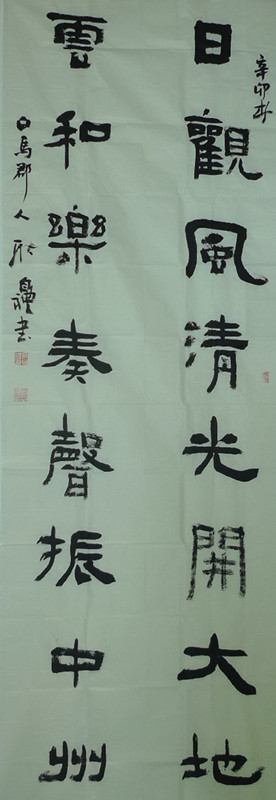 辛卯
日觀風清光開大地
雲和樂奏聲振中州
白馬郡人 書